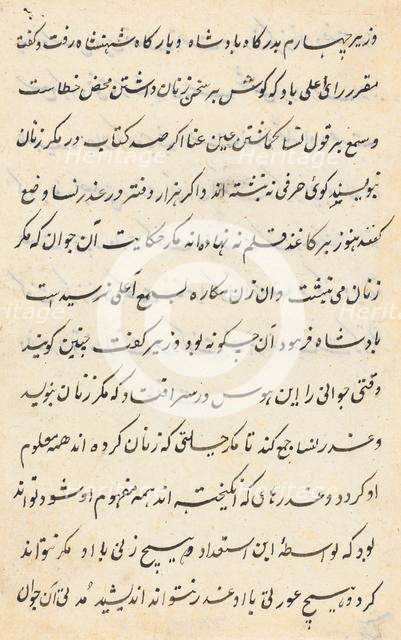 وزیر چهارم بدرکاه بادشاه و بارکاه شهنشاه رفت و کفت
مقرر رای اعلی باد که کوش بر سخن زنان داشتن محض خطاست
و سمع بر قول نسا کماشتن عین عنا اکر صد کتاب در مکر زنان
نبویسند کوئی حرفی نه نبشته اند و اکر هزار دفتر در غدر نسا وضع
کنند هنوز بر کاغذ قلم نه نهاده اند مکر حکایت آن جوان که مکر
زنان می نبشت و ان زن مکاره بسمع اعلی نرسیده است
بادشاه فرمود آن چکونه بود وزیر کفت چنین کویند
وقتی جوانی را این هوس در سر افتاد که مکر زنان بنویسد
و غدر نسا جمع کند تا مکر و حیلتی که زنان کرده اند همه معلوم
او کردد و غدرهای که انکیخته اند همه مفهوم او شود و تواند
بود که بواسطهٔ این استعداد هیچ زنی با او مکر نتواند
کرد و هیچ عورتی با او غدر نتواند اندیشید مدتی آن جوان
Heritage
Heritage
Heritage
Heritage
Heritage
Heritage